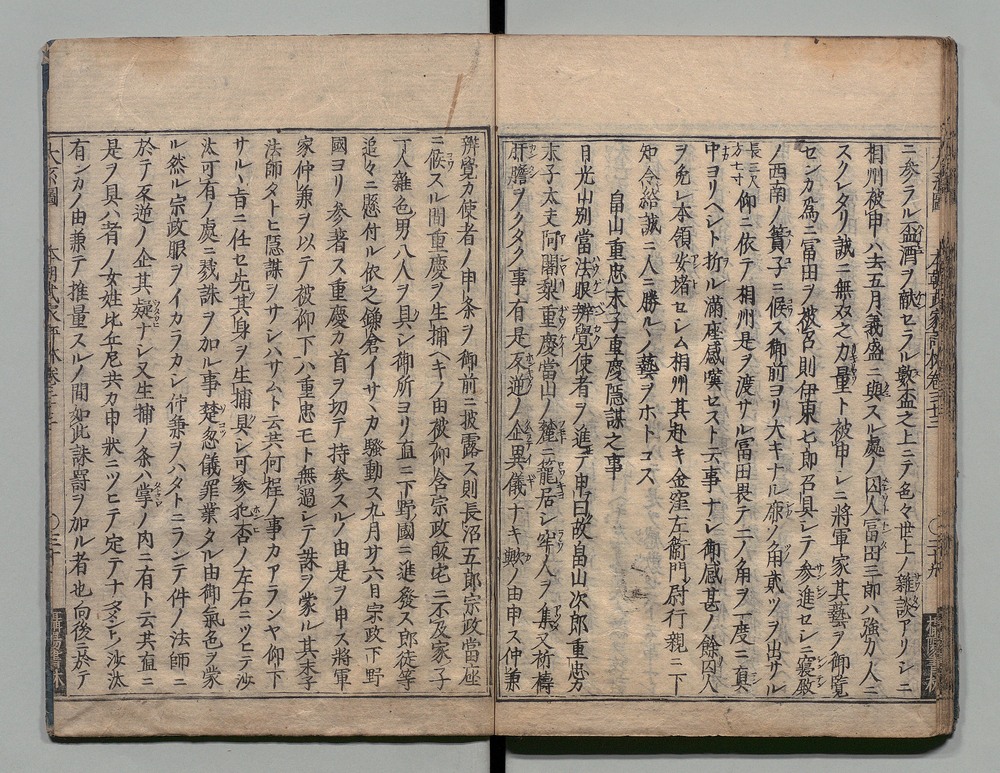 ニ参ラル盃酒ヲ献セラル數盃之上ニテ色々世上ノ雜談アリシニ
相州被申ハ去五月義盛ニ與スル處ノ囚人冨田三郎ハ強力人ニ
スクレタリ誠ニ無双之力量ト被申レニ將軍家其藝ヲ御覧
センカ爲ニ冨田ヲ被召則伊東七郎召具シテ参進セシニ寝殿
ノ西南ノ簀子ニ候ス御前ヨリ大キナル角貳ツヲ出サル
長三尺方七寸仰ニ依テ相州是ヲ渡サル冨田畏テ二ノ角ヲ一度ニ真
中ヨリヘシト折ル滿座感嘆セスト云事ナシ御感甚ノ餘囚人
ヲ免レ本領安堵セシム相州其赴キ金窪左衞門尉行親ニ下
知令給誠ニ人ニ勝ルノ藝ヲホトコス
畠山重忠末子重慶隠謀之事
日光山別當法眼辨覺使者ヲ進テ申曰故畠山次郎重忠カ
末子太夫阿闍梨重慶當山ノ麓ニ籠居シ牢人ヲ集又祈禱
肝膽ヲクタク事有是反逆ノ企異儀ナキ歟ノ由申ス仲兼
辨覺カ使者ノ申条ヲ御前ニ披露ス則長沼五郎宗政當座
ニ候スル間重慶ヲ生捕ヘキノ由被仰含宗政皈宅ニ不及家子
一人雜色男八人ヲ具シ御所ヨリ直ニ下野國ニ進發ス郎從等
追々ニ懸付ル依之鎌倉イサヽカ騒動ス九月廿六日宗政下野
國ヨリ参著ス重慶カ首ヲ切テ持参スルノ由是ヲ申ス將軍
家仲兼ヲ以テ被仰下ハ重忠モト無過シテ誅ヲ蒙ル其末子
法師タトヒ隠謀ヲサシハサムト云共何程ノ事カアランヤ仰下
サルヽ旨ニ任セ先其身ヲ生捕具シ可参犯否ノ左右ニツヒテ沙
汰可有ノ處ニ戮誅ヲ加ル事楚忽儀罪業タル由御氣色ヲ蒙
ル然ル宗政眼ヲイカラカシ仲兼ヲハタトニランテ件ノ法師ニ
於テ反逆ノ企其疑ナシ又生捕ノ条ハ掌ノ内ニ有ト云共直ニ
是ヲ具ハ者ノ女姓比丘尼共カ申狀ニツヒテ定テナタメシ沙汰
有ンカノ由兼テ推量スルノ間如此誅罸ヲ加ル者也向後ニ於テ